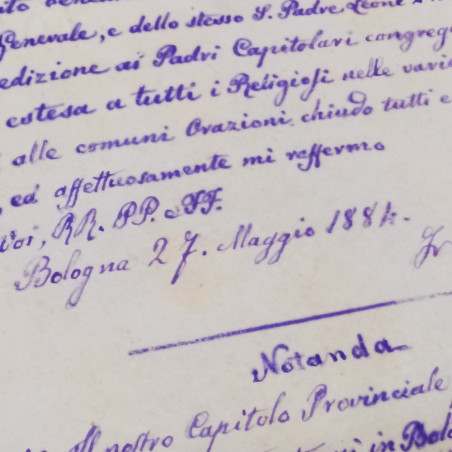 Generale, e dello stesso S. Padre Leone
edizione ai Padri Capitolari congreg
estesa a tutti i Religiosi nelle varie
alle comuni Orazioni chiudo tutti e
ed affettuosamente mi raffermo
RR. PP. e FF.
Bologna 27. Maggio 1884.
Fr
Notanda
nostro Capitolo Provinciale
in Bolo